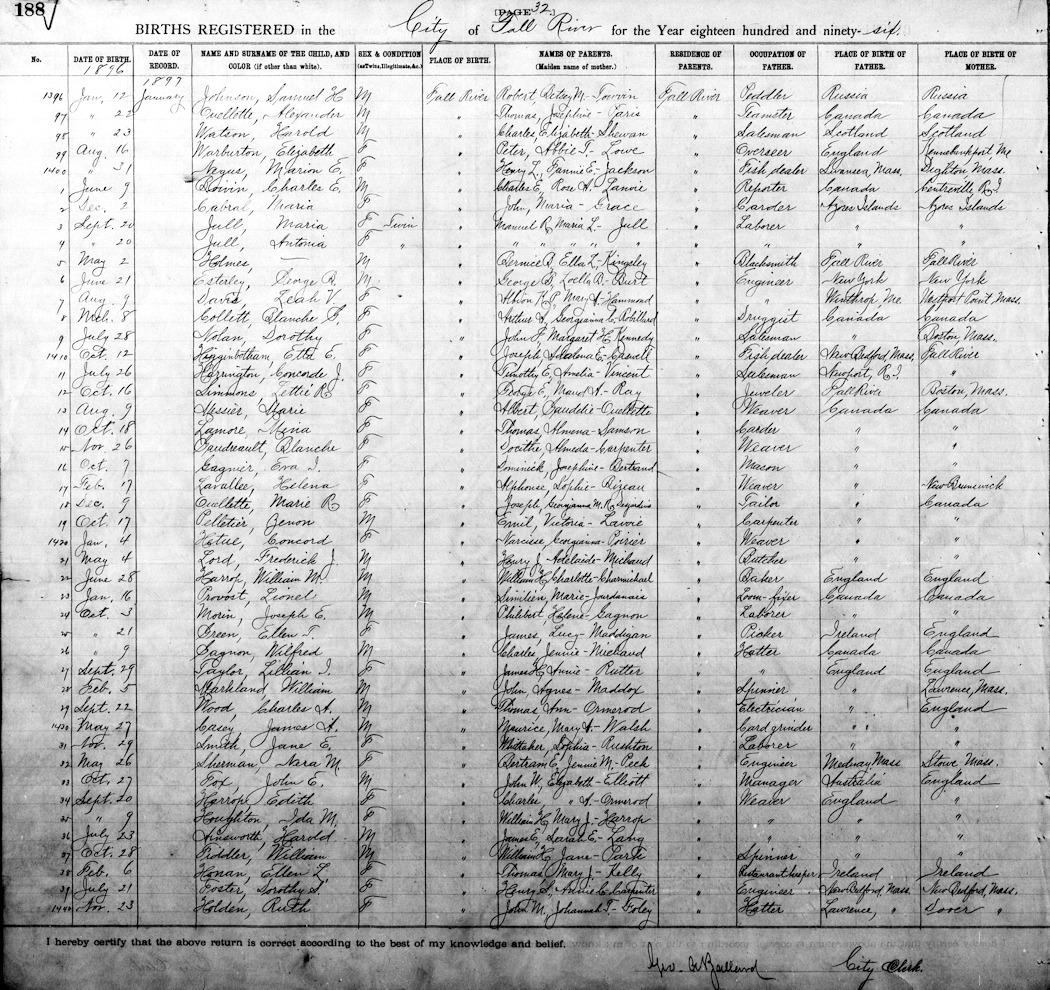 188
[PAGE 32.]
BIRTHS REGISTERED in the City of Fall River for the Year eighteen hundred and ninety-six.
No. DATE OF BIRTH. 1896 DATE OF RECORD. 1897 NAME AND SURNAME OF THE CHILD, AND COLOR (if other than white). SEX & CONDITION (as Twins, Illegitimate, &c.) PLACE OF BIRTH. NAMES OF PARENTS. (Maiden name of mother.) RESIDENCE OF PARENTS. OCCUPATION OF FATHER. PLACE OF BIRTH OF FATHER. PLACE OF BIRTH OF MOTHER.
1396 Jan. 12 January Johnson, Samuel H M Fall River Robert, Betsey M. - Fall River Peddler Russia Russia
97 " 22 Ouellette, Alexander M " Thomas, Josephine - Paris " Teamster Canada Canada
98 " 23 Watson, Harold M " Charles, Elizabeth - Shewan " Salesman Scotland Scotland
99 Aug. 16 Warburton, Elizabeth F " Peter, Abbie T. - Lowe " Overseer England Kennebunkport, Me
1400 " 31 Negus, Marion E. F " Henry L., Fannie E. - Jackson " Fish dealer Swansea, Mass. Dighton, Mass.
1 June 9 Boivin, Charles E. M " Charles E., Rose A. - Lanoie " Reporter Canada Centreville, R.I.
2 Dec. 2 Cabral, Maria F " John, Maria - Grace " Carder Azores Islands Azores Islands
3 Sept. 20 Jull, Maria F Twin " Manuel R, Maria L. - Jull " Laborer " "
4 " 20 Jull, Antonia F " " " " " " " " " "
5 May 2 Holmes, — M " Bernice B, Ella L. - Kingsley " Blacksmith Fall River Fall River
6 June 21 Esterley, George R. M " George B, Loella B. - Burt " Engineer New York New York
7 Aug. 9 Davis, Leah V. F " Albion K.P., Mary A. - Hammond " " Winthrop, Me. Westport Point, Mass.
8 Mch. 8 Collett, Blanche F. F " Arthur S, Georgianna L. - Robillard " Druggist Canada Canada
9 July 28 Nolan, Dorothy F " John F, Margaret H. Kennedy " Salesman " Boston, Mass.
1410 Oct. 12 Higginbotham, Etta E. F " Joseph, E. - Caswell " Fish dealer New Bedford, Mass. Fall River
11 July 26 Harrington, Concorde J. F " Timothy E, Amelia - Vincent " Salesman Newport, R.I. "
12 Oct. 16 Simmons, Lettie R F " George E, Maud A. - Ray " Jeweler Fall River Boston, Mass.
13 Aug. 9 Messier, Marie F " Albert, Claudelie - Ouellette " Weaver Canada Canada
14 Oct. 18 Lamore, Mina F " Thomas, Almena - Samson " Carder " "
15 Nov. 26 Gaudreault, Blanche F " Docithe, Almeda - Carpenter " Weaver " "
16 Oct. 7 Gagnier, Eva I. F " Dominick, Josephine - Bertrand " Mason " "
17 Feb. 17 Lavallee, Helena F " Alphonse, Sophie - Bizeau " Weaver " New Brunswick
18 Dec. 9 Ouellette, Marie R F " Joseph, Georgianna M.R. Desjardins " Tailor " Canada
19 Oct. 17 Pelletier, Zenon M " Emil, Victoria - Lavoie " Carpenter " "
1420 Jan. 4 Hetue, Concord F " Narcisse, Georgianna - Poirier " Weaver " "
21 May 4 Lord, Frederick J. M " Henry J., Adelaide - Michaud " Butcher " "
22 June 28 Harrop, William M. M " William H, Charlotte - Charmichael " Baker England England
23 Jan. 16 Provost, Lionel M " Similien, Marie - Jourdanais " Loom-fixer Canada Canada
24 Oct. 3 Morin, Joseph E. M " Philibert, Helene - Gagnon " Laborer " "
25 " 21 Green, Ellen T. F " James, Lucy - Maddigan " Picker Ireland England
26 " 9 Gagnon, Wilfred M " Charles, Jennie - Michaud " Hatter Canada Canada
27 Sept. 29 Taylor, Lillian I. F " James H, Annie - Rutter " " England England
28 Feb. 5 Markland, William M " John, Agnes - Maddox " Spinner " Lawrence, Mass.
29 Sept. 22 Wood, Charles A. M " Thomas, Ann - Ormerod " Electrician " England
1430 May 27 Casey, James A. M " Maurice, Mary A. - Walsh " Card grinder " "
31 Nov. 29 Smith, Jane E. F " Whittaker, Sophia - Rushton " Laborer " "
32 May 26 Sherman, Nara M. F " Bertram E, Jennie M. - Peck " Engineer Medway Mass. Stowe Mass.
33 Oct. 27 Fox, John E. M " John W, Elizabeth - Elliott " Manager Australia England
34 Sept. 20 Harrop, Edith F " Charles, " A. - Ormerod " Weaver England "
35 " 9 Houghton, Ida M. F " William H, Mary J. - Harrop " " " "
36 July 23 Ainsworth, Harold M " James E, Sarah E. - Lang " " " "
37 Oct. 28 Fiddler, William M " William H, Jane - Park " Spinner " "
38 Feb. 6 Honan, Ellen L. F " Thomas, Mary J. - Kelly " Restaurant keeper Ireland Ireland
39 July 21 Foster, Dorothy S. F " Henry S, Annie C. Carpenter " Engineer New Bedford, Mass. New Bedford, Mass.
1440 Nov. 23 Holden, Ruth F " John M., Johannah T. - Foley " Hatter Lawrence, " Dover "
I hereby certify that the above return is correct according to the best of my knowledge and belief.
Geo. A. Ballard City Clerk.